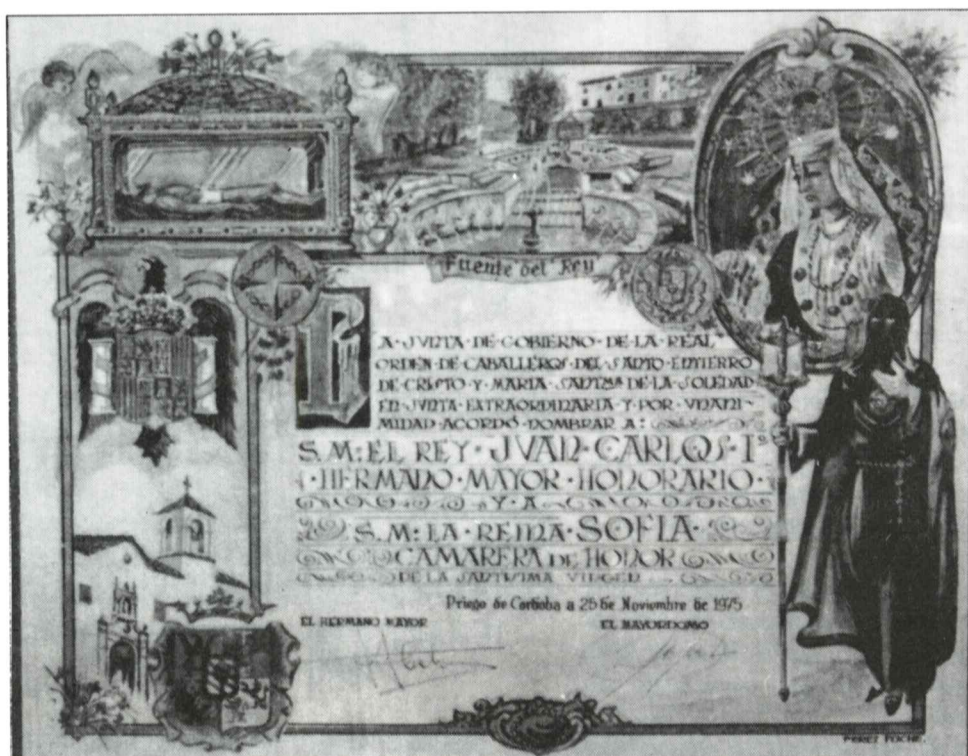 Fuente del Rey
A · JVNTA · DE · GOBIERNO · DE · LA · REAL
ORDEN · DE · CABALLEROS · DEL · SANTO · ENTIERRO
DE · CRISTO · Y · MARIA · SANTMA · DE · LA · SOLEDAD
EN · JVNTA · EXTRAORDINARIA · Y · POR · VNANI-
MIDAD · ACORDÓ · NOMBRAR · A:
S. M: EL REY · JVAN · CARLOS · I
· HERMANO · MAYOR · HONORARIO ·
· Y · A ·
S. M: LA · REINA · SOFIA ·
CAMARERA DE HONOR
DE LA SANTISIMA VIRGEN
Priego de Cordoba a 25 de Noviembre de 1975
EL HERMANO MAYOR EL MAYORDOMO
PEREZ